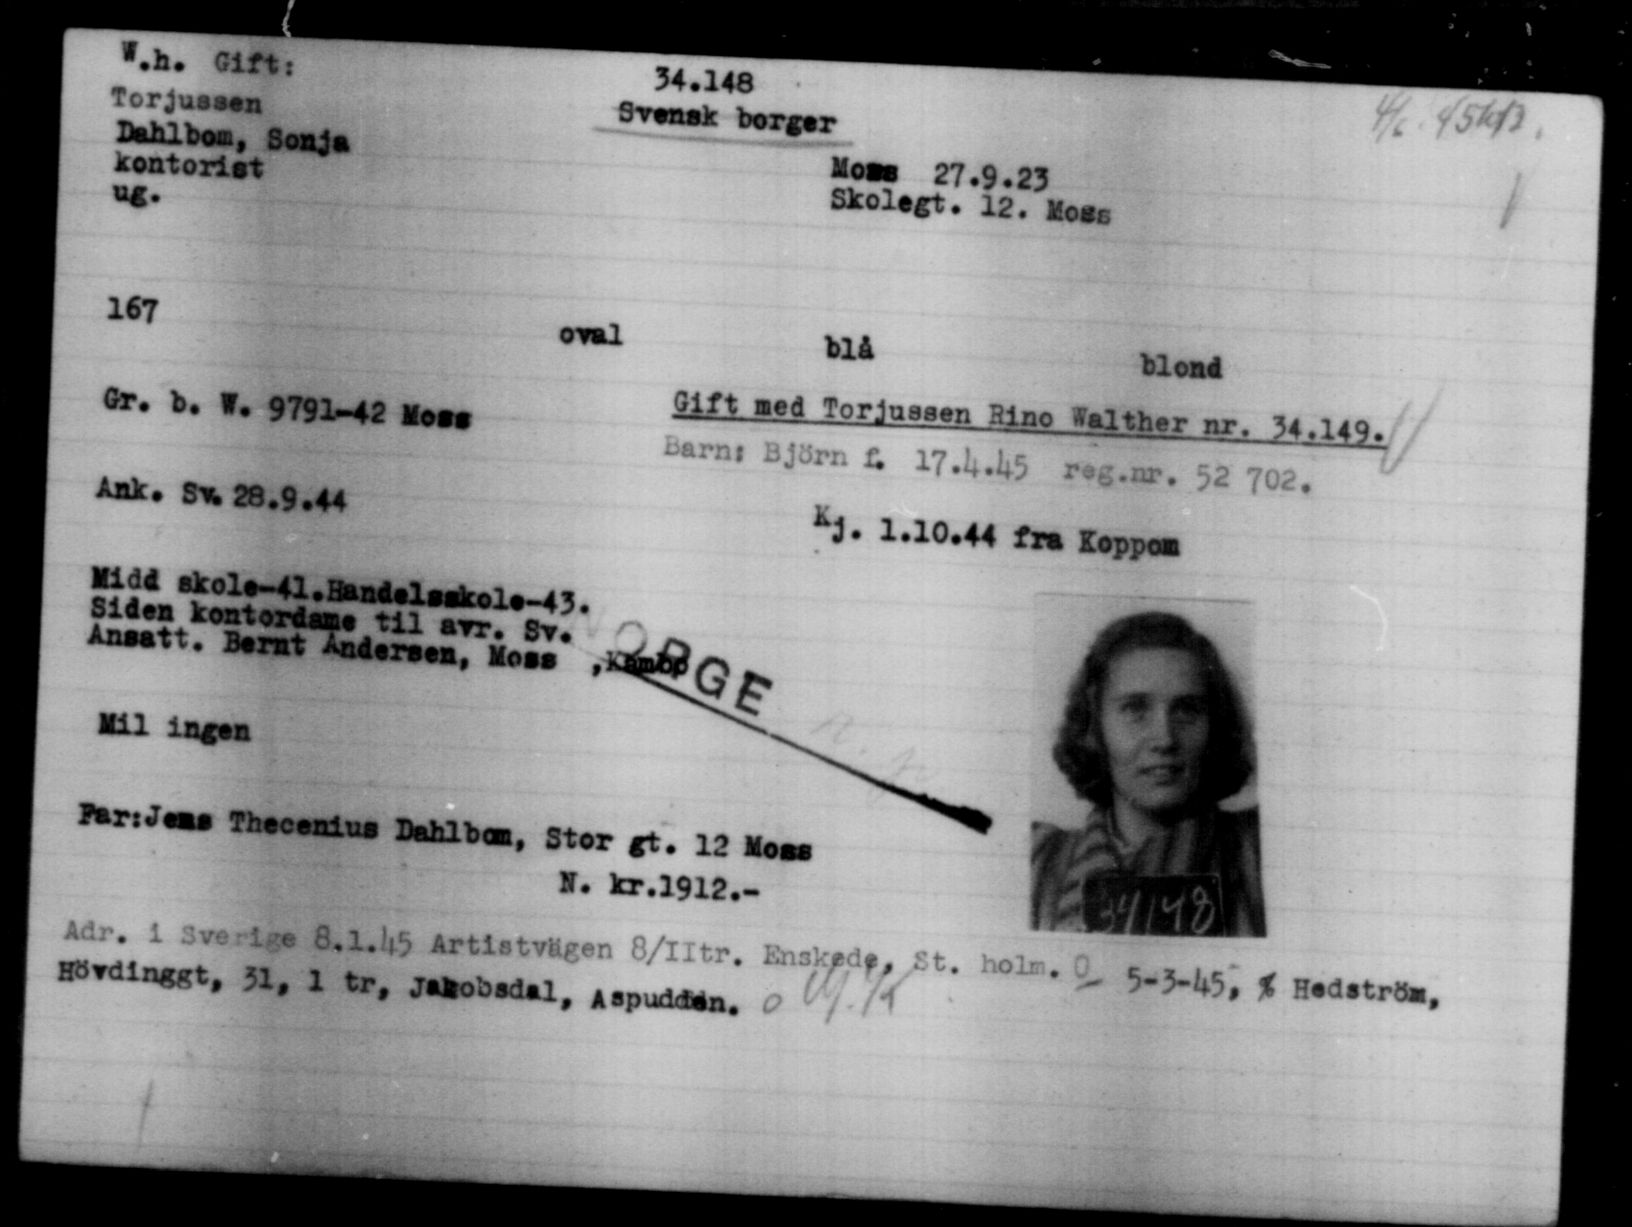 W.h. Gift:
34.148
Torjussen
Svensk borger
Dahlbom, Sonja
kontorist
Moss 27.9.23
ug.
Skolegt. 12. Moss
167
oval
blå
blond
Gr. b. W. 9791-42 Moss
Gift med Torjussen Rino Walther nr. 34.149.
Barn: Björn f. 17.4.45 reg.nr. 52 702.
Ank. Sv. 28.9.44
Kj. 1.10.44 fra Koppom
Midd skole-41.Handelsskole-43.
Siden kontordame til avr. Sv.
Ansatt. Bernt Andersen, Moss ,Kambo
NORGE
Mil ingen
Far:Jens Thecenius Dahlbom, Stor gt. 12 Moss
N. kr.1912.-
34148
Adr. i Sverige 8.1.45 Artistvägen 8/IItr. Enskede, St. holm. O 5-3-45, % Hedström,
Hövdinggt, 31, 1 tr, Jakobsdal, Aspudden. o